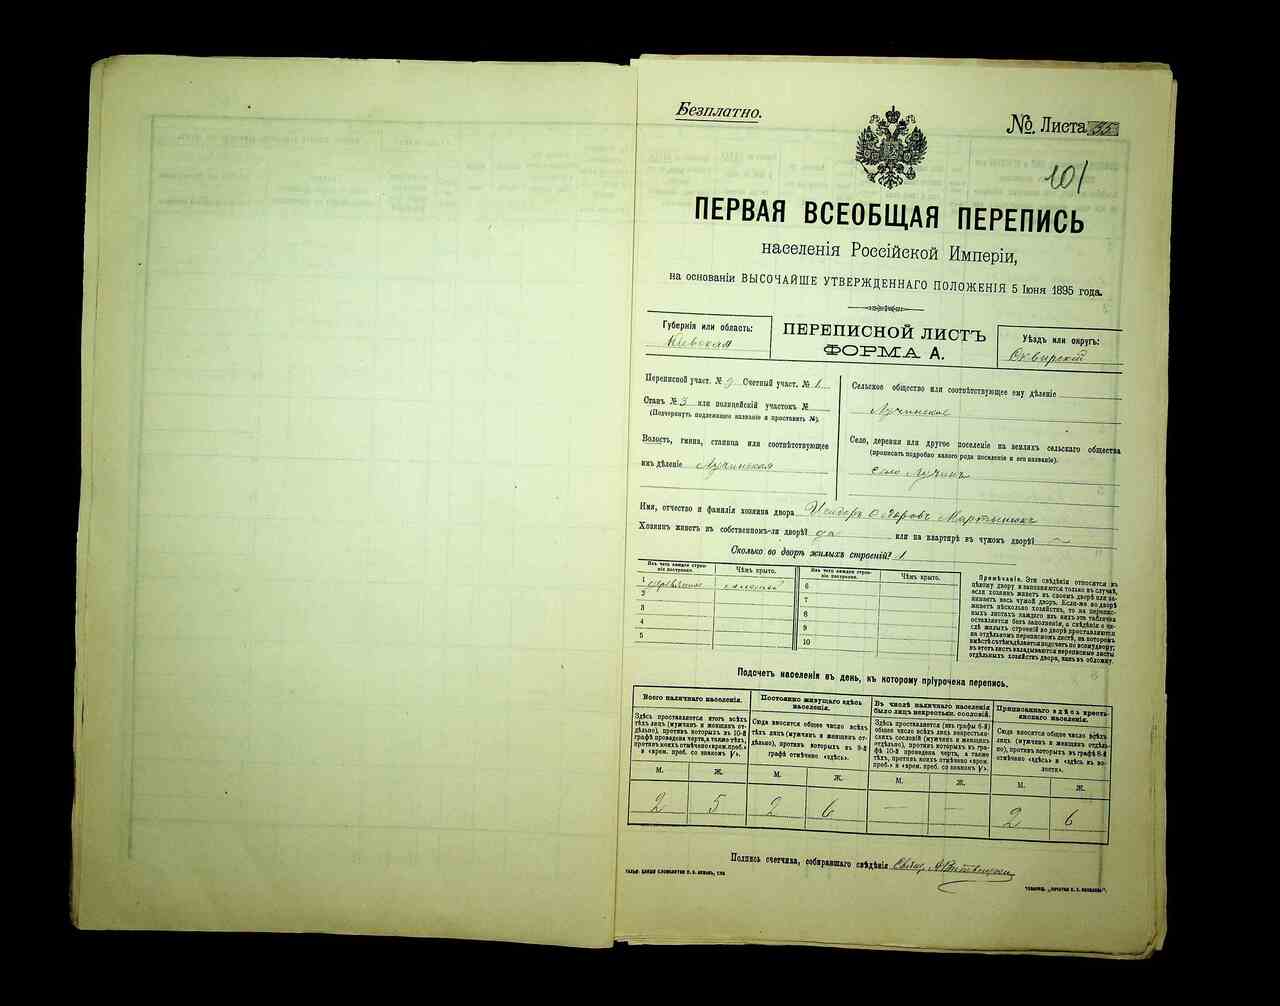 Безплатно.
№ Листа 35
101
ПЕРВАЯ ВСЕОБЩАЯ ПЕРЕПИСЬ
населенія Россійской Имперіи,
на основаніи ВЫСОЧАЙШЕ УТВЕРЖДЕННАГО ПОЛОЖЕНІЯ 5 Іюня 1895 года.
Губернія или область:
Кіевская
ПЕРЕПИСНОЙ ЛИСТЪ
ФОРМА А.
Уѣздъ или округъ:
Сквирскій
Переписной участ. № 9 Счетный участ. № 1
Станъ № 3 или полицейскій участокъ №
(Подчеркнуть подлежащее названіе и проставить №).
Волость, гмина, станица или соотвѣтствующее
имъ дѣленіе Лучинская
Сельское общество или соотвѣтствующее ему дѣленіе
Лучинское
Село, деревня или другое поселеніе на земляхъ сельскаго общества
(прописать подробно какого рода поселеніе и его названіе).
село Лучинъ
Имя, отчество и фамилія хозяина двора Исидоръ Ѳедоровъ Мартынюкъ
Хозяинъ живетъ въ собственномъ-ли дворѣ? да или на квартирѣ въ чужомъ дворѣ? —
Сколько во дворѣ жилыхъ строеній? 1
Изъ чего каждое строеніе построено.
Чѣмъ крыто.
Изъ чего каждое строеніе построено.
Чѣмъ крыто.
1 соломой 6
2 7
3 8
4 9
5 10
Примѣчаніе. Эти свѣдѣнія относятся къ
цѣлому двору и заполняются только въ случаѣ,
если хозяинъ живетъ въ своемъ дворѣ или занимаетъ
весь чужой дворъ. Если-же во дворѣ
живетъ нѣсколько хозяйствъ, то на переписныхъ
листахъ каждаго изъ нихъ эта табличка
оставляется безъ заполненія, а свѣдѣнія о числѣ
жилыхъ строеній во дворѣ проставляются
на отдѣльномъ переписномъ листѣ, на которомъ
вмѣстѣ съ тѣмъ дѣлается подсчетъ по всему двору;
въ этотъ листъ вкладываются переписные листы
отдѣльныхъ хозяйствъ двора, какъ въ обложку.
Подсчетъ населенія въ день, къ которому пріурочена перепись.
Всего наличнаго населенія.
Здѣсь проставляется итогъ всѣхъ
тѣхъ лицъ (мужчинъ и женщинъ отдѣльно),
противъ которыхъ въ 10-й
графѣ проведена черта, а также тѣхъ,
противъ коихъ отмѣчено «времен. преб.»
и «врем. преб. со знакомъ V».
Постоянно живущаго здѣсь
населенія.
Сюда вносится общее число всѣхъ
тѣхъ лицъ (мужчинъ и женщинъ отдѣльно),
противъ которыхъ въ 9-й
графѣ отмѣчено «здѣсь».
Въ числѣ наличнаго населенія
было лицъ некрестьян. сословій.
Здѣсь проставляется (изъ графы 6-й)
общее число всѣхъ лицъ некрестьянскихъ
сословій (мужчинъ и женщинъ
отдѣльно), противъ которыхъ въ графѣ
10-й проведена черта, а также
тѣхъ, противъ коихъ отмѣчено «врем.
преб.» и «врем. преб. со знакомъ V».
Приписаннаго здѣсь крестьянскаго
населенія.
Сюда вносится общее число всѣхъ
лицъ (мужчинъ и женщинъ отдѣльно),
противъ которыхъ въ графѣ 8-й
отмѣчено «здѣсь» и «здѣсь въ волости».
М. Ж. М. Ж. М. Ж. М. Ж.
2 5 2 6 — — 2 6
Подпись счетчика, собиравшаго свѣдѣнія